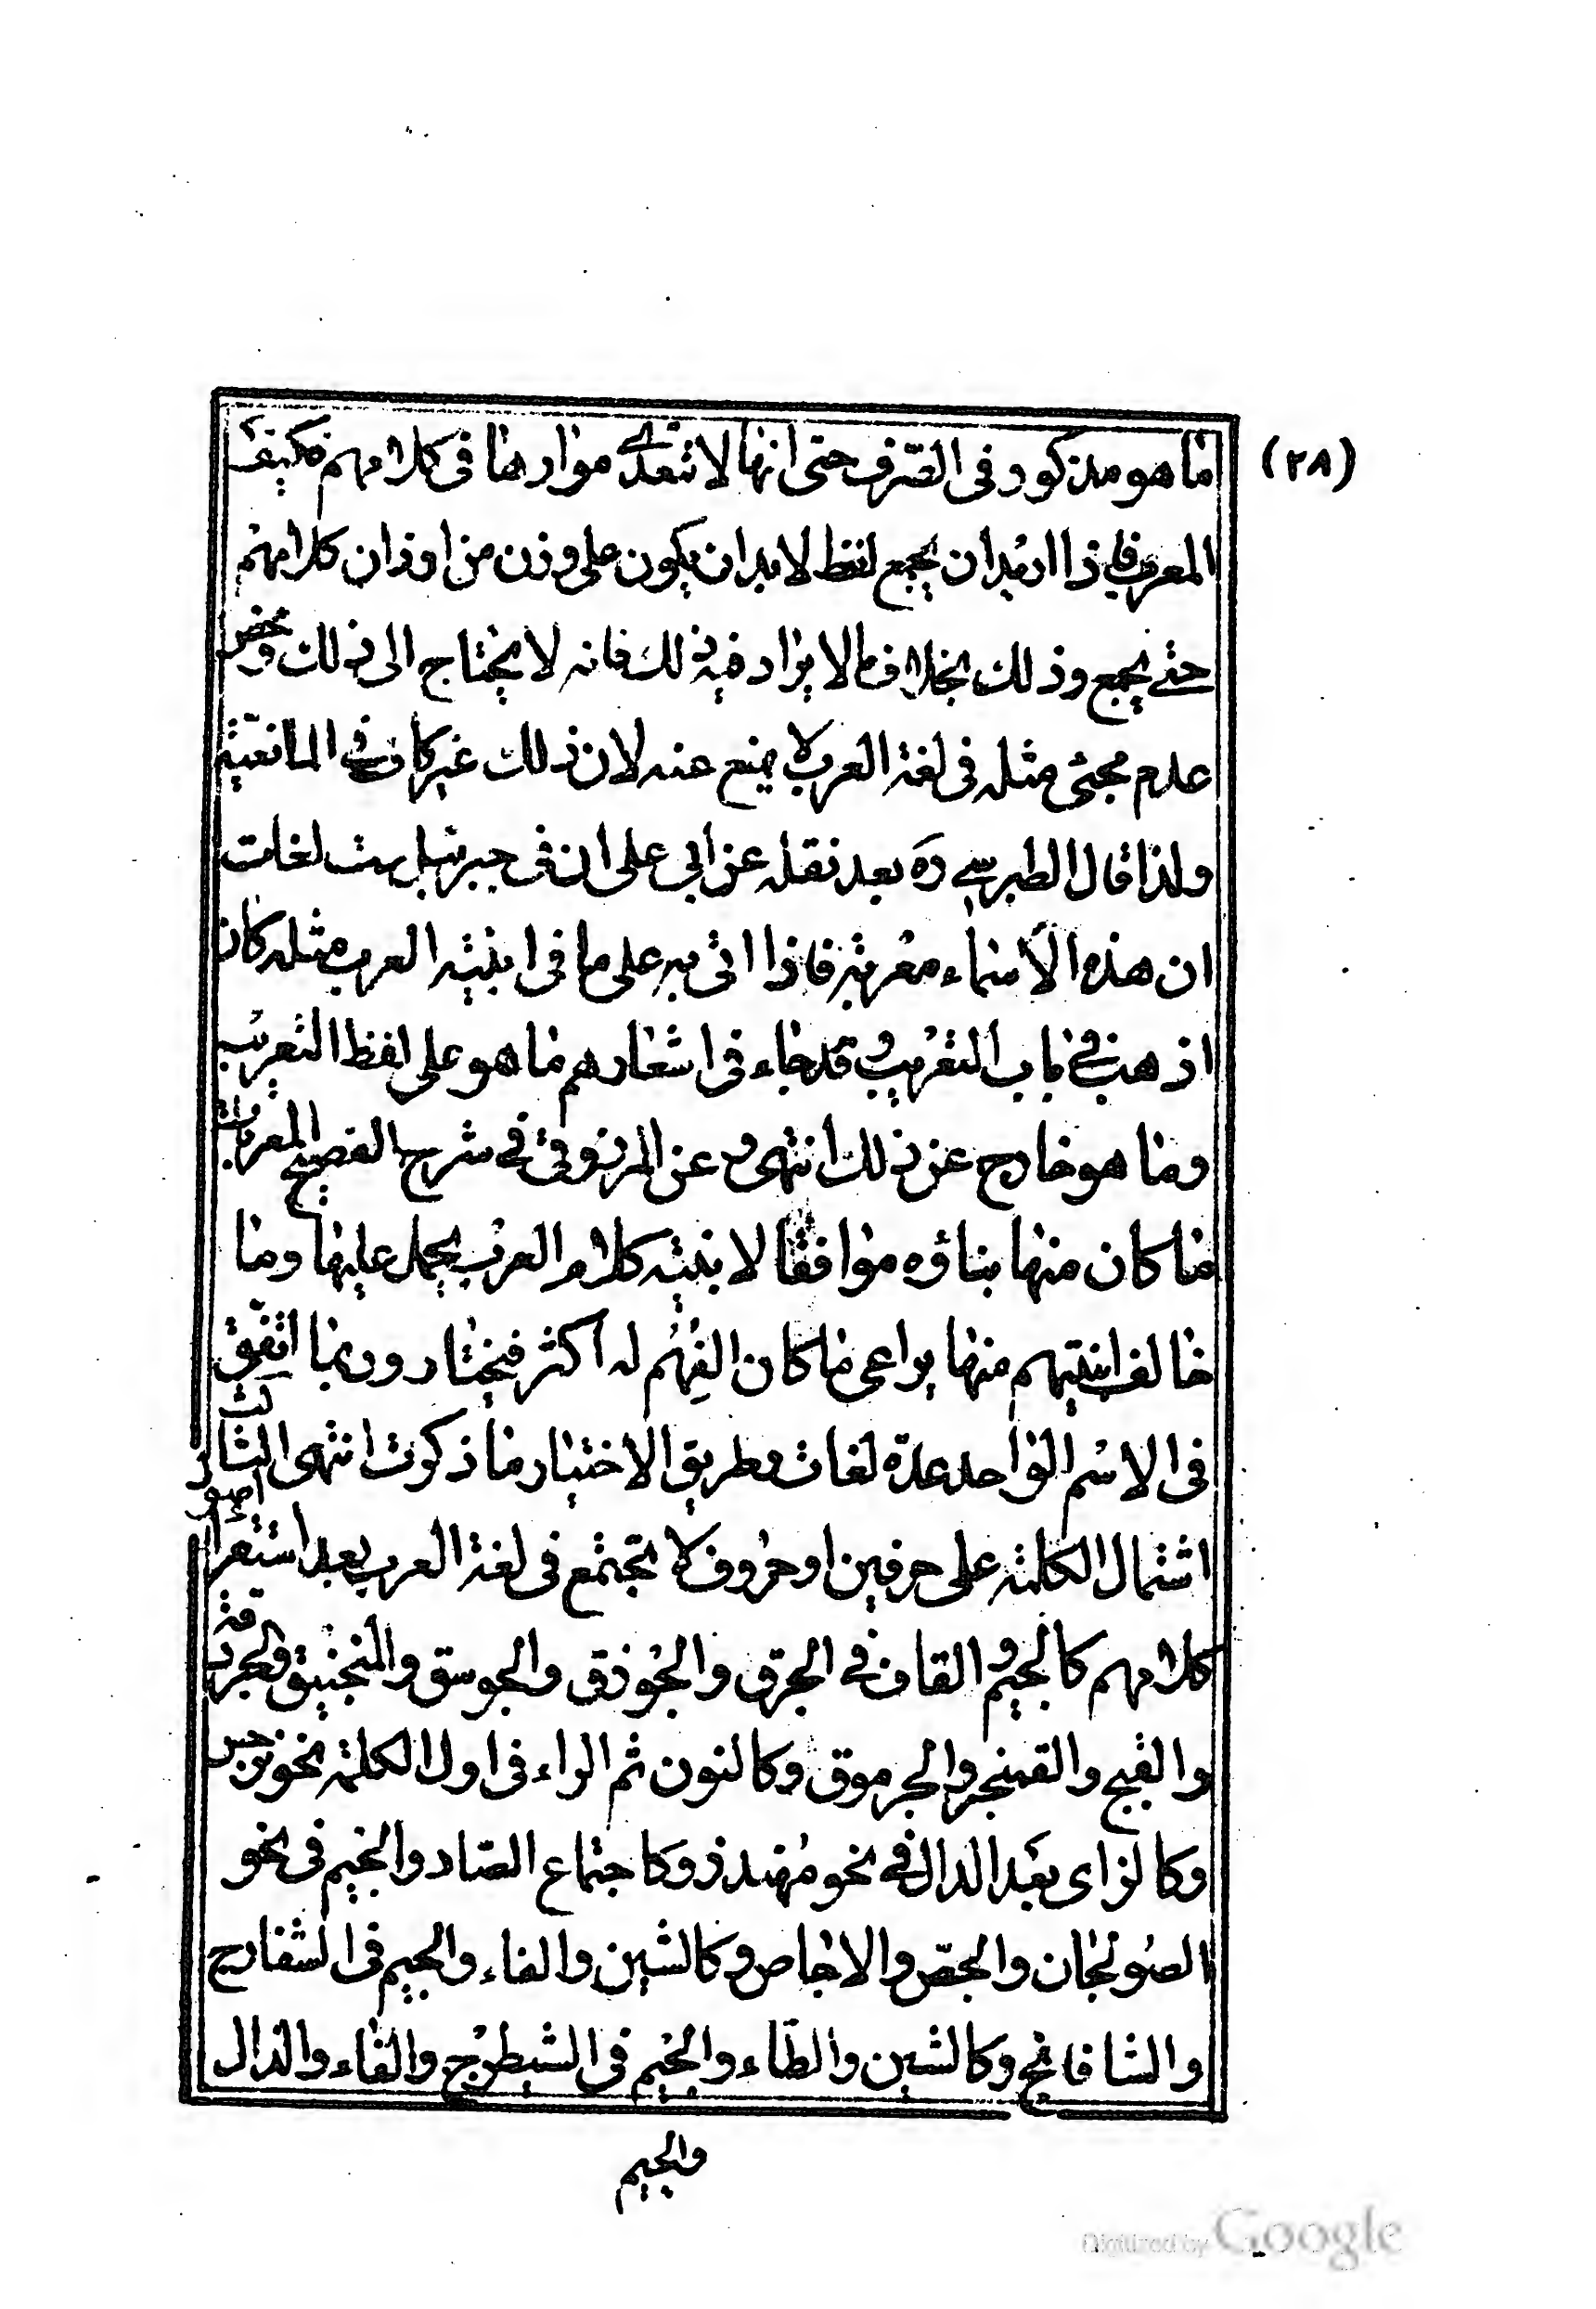 (٢٨)
ما هو مذكور في الصّرف حتى انها لا تتعدى مواردها في كلامهم فكيف
المعرب فاذا اريد ان يجمع لفظ لا بد ان يكون على وزن من اوزان كلامهم
حتى يجمع وذلك بخلاف ما لا يراد فيه ذلك فانه لا يحتاج الى ذلك ومحض
عدم مجئ مثله في لغة العرب لا يمنع عنه لان ذلك غير كاف في المانعيّة
ولذا قال الطبرسي ره بعد نقله عن ابي على ان في جبرئيل ست لغات
ان هذه الأسماء معربة فاذا اتى به على ما في ابنية العرب مثله كان
اذهب في باب التعريب وقد جاء في اشعارهم ما هو على لفظ التعريب
وما هو خارج عن ذلك انتهى وعن المرزوقي في شرح الفصيح المعربات
ما كان منها بناؤه موافقا لابنية كلام العرب يحمل عليها وما
خالف ابنيتهم منها يراعى ما كان الفهم له اكثر فيختار وربما اتّفق
في الاسم الواحد عدة لغات وطريق الاختيار ما ذكرت انتهى الثالث
اشتمال الكلمة على حرفين او حروف لا تجتمع في لغة العرب بعد استقراء اصول
كلامهم كالجيم والقاف في الجرق والجوذق والجوسق والمنجنيق والجردقة
والقبج والقمنجر والجرموق وكالنون ثم الراء في اول الكلمة نحو نرجس
وكالزاى بعد الدال في نحو مهندز وكاجتماع الصاد والجيم في نحو
الصولجان والجصّ والاجاص وكالشين والفاء والجيم في الشفارج
والشافانج وكالشين والطّاء والجيم في الشيطرج والفاء والدال
والجيم
Digitized by Google